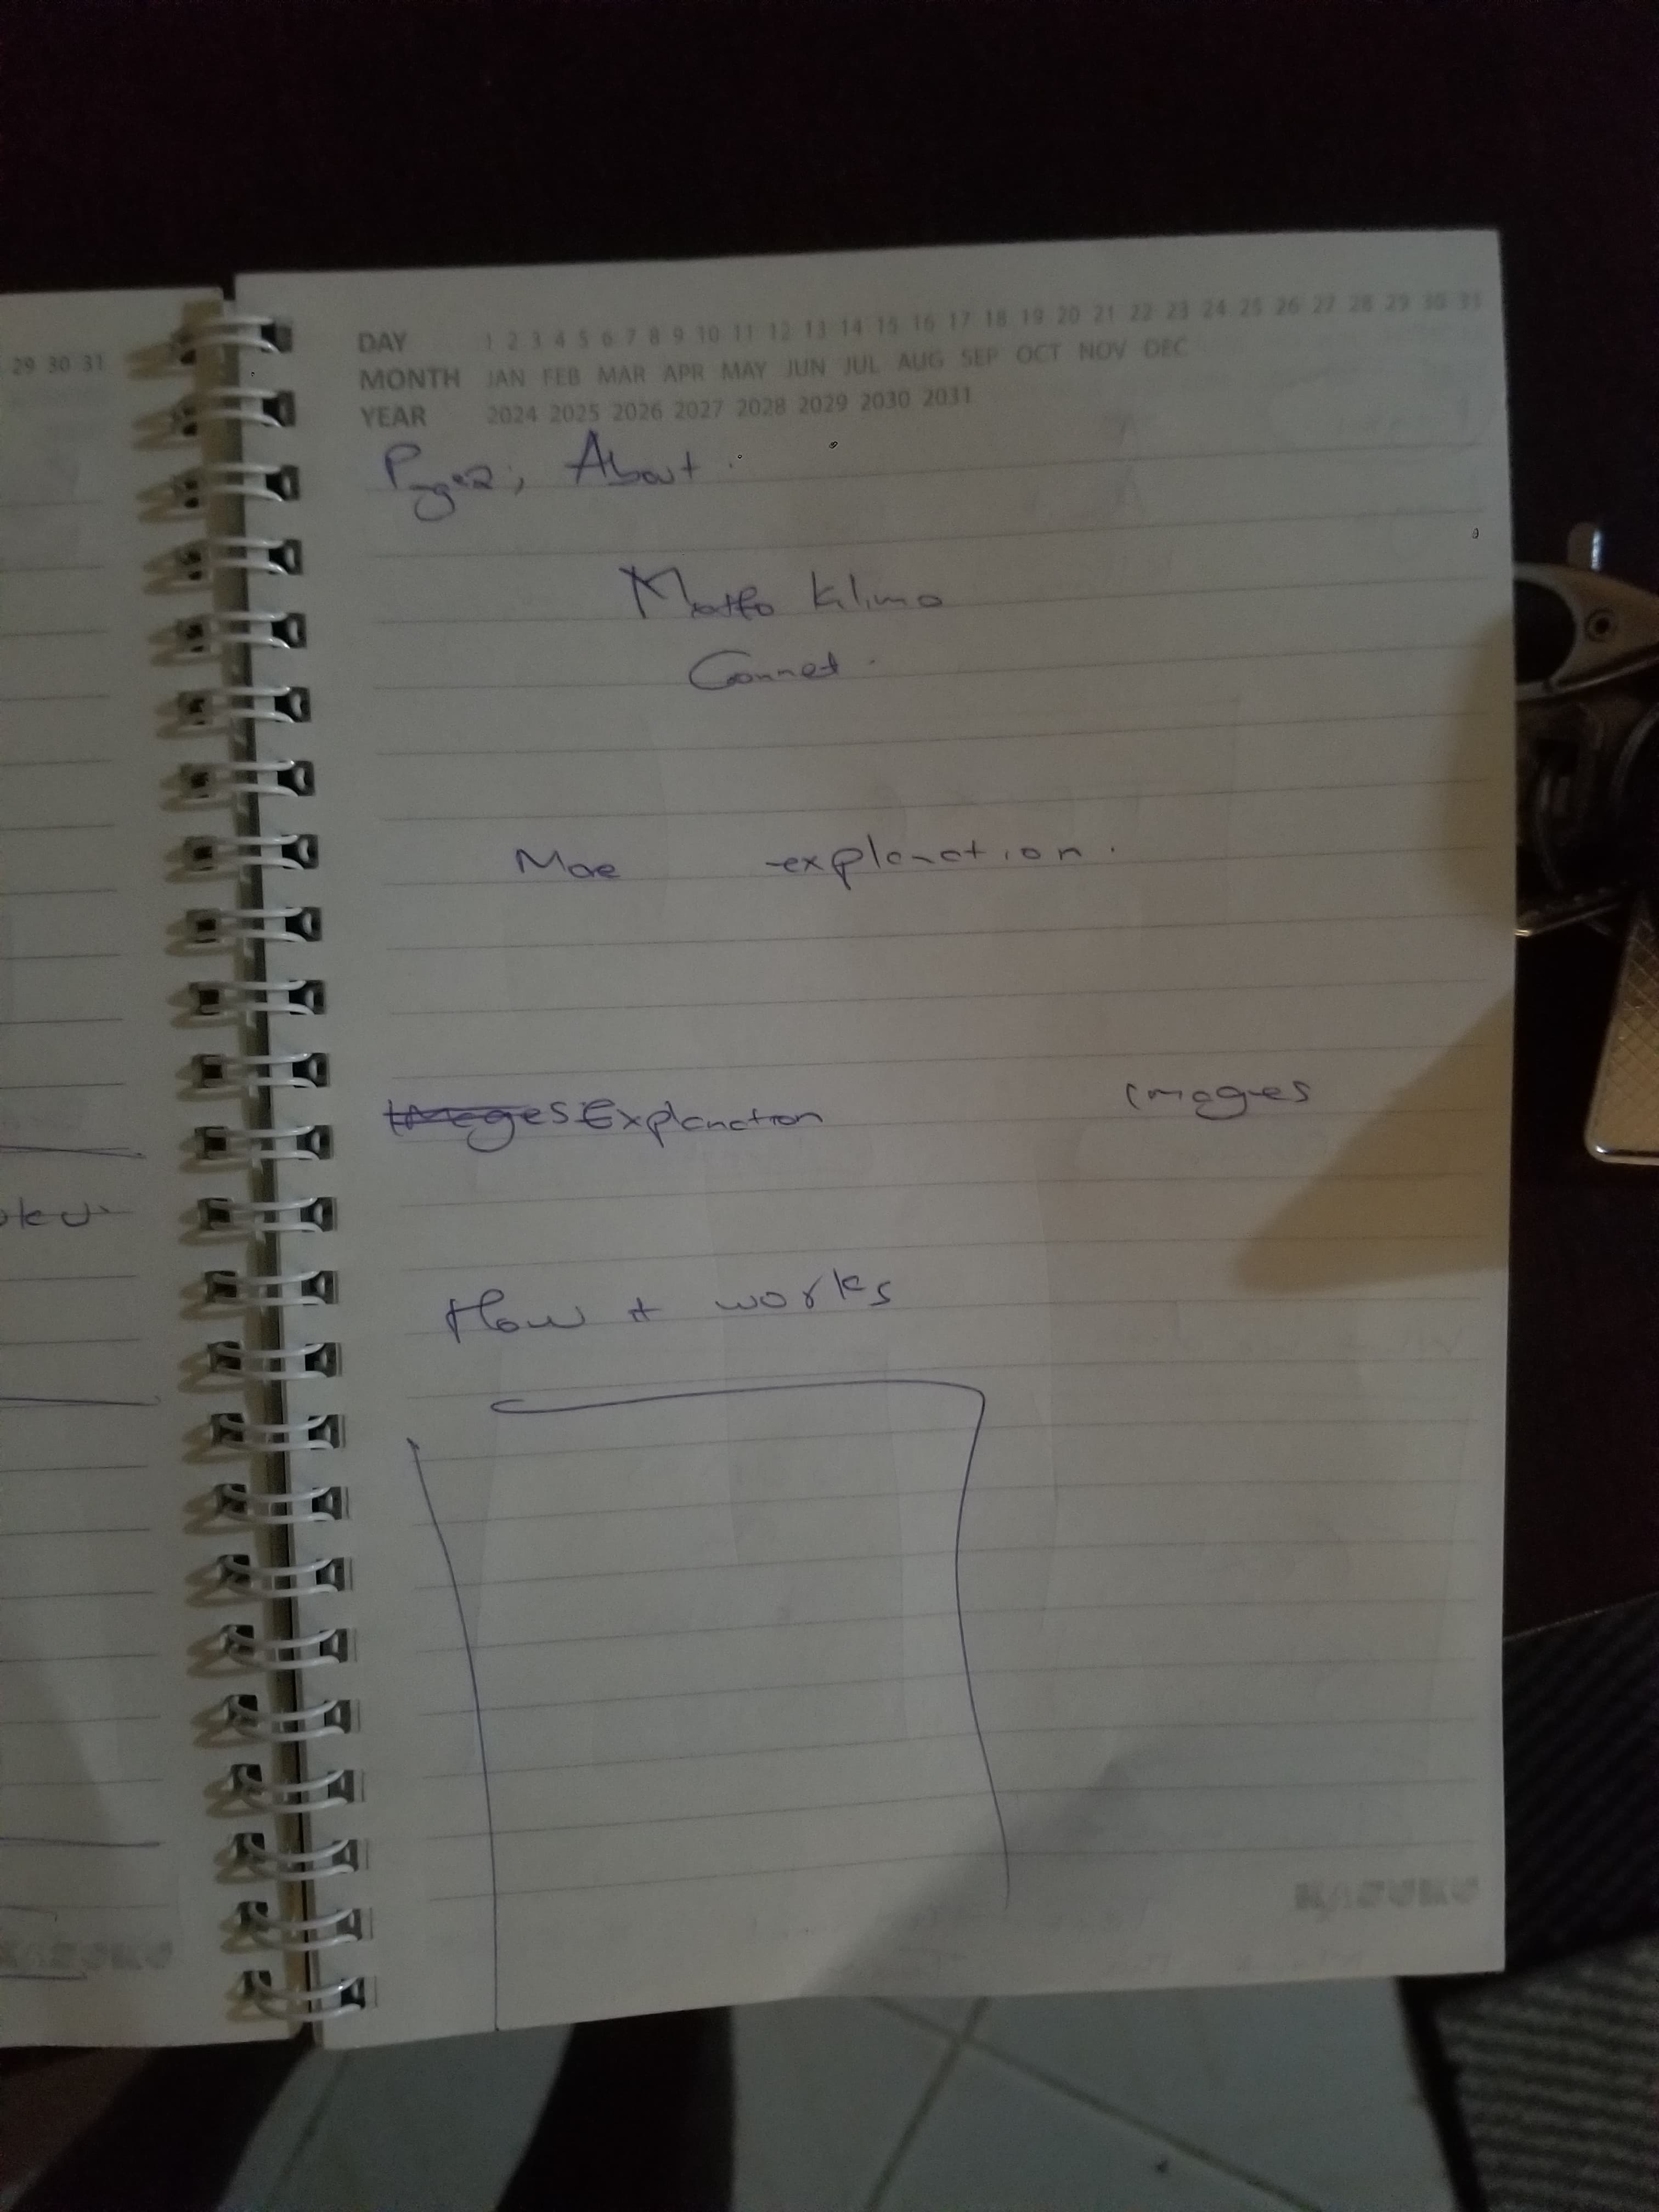 29 30 31
DAY 1 2 3 4 5 6 7 8 9 10 11 12 13 14 15 16 17 18 19 20 21 22 23 24 25 26 27 28 29 30 31
MONTH JAN FEB MAR APR MAY JUN JUL AUG SEP OCT NOV DEC
YEAR 2024 2025 2026 2027 2028 2029 2030 2031
Page2; About.
Klimo
Connet.
Moe explanation.
Images Explanation Images
How it works